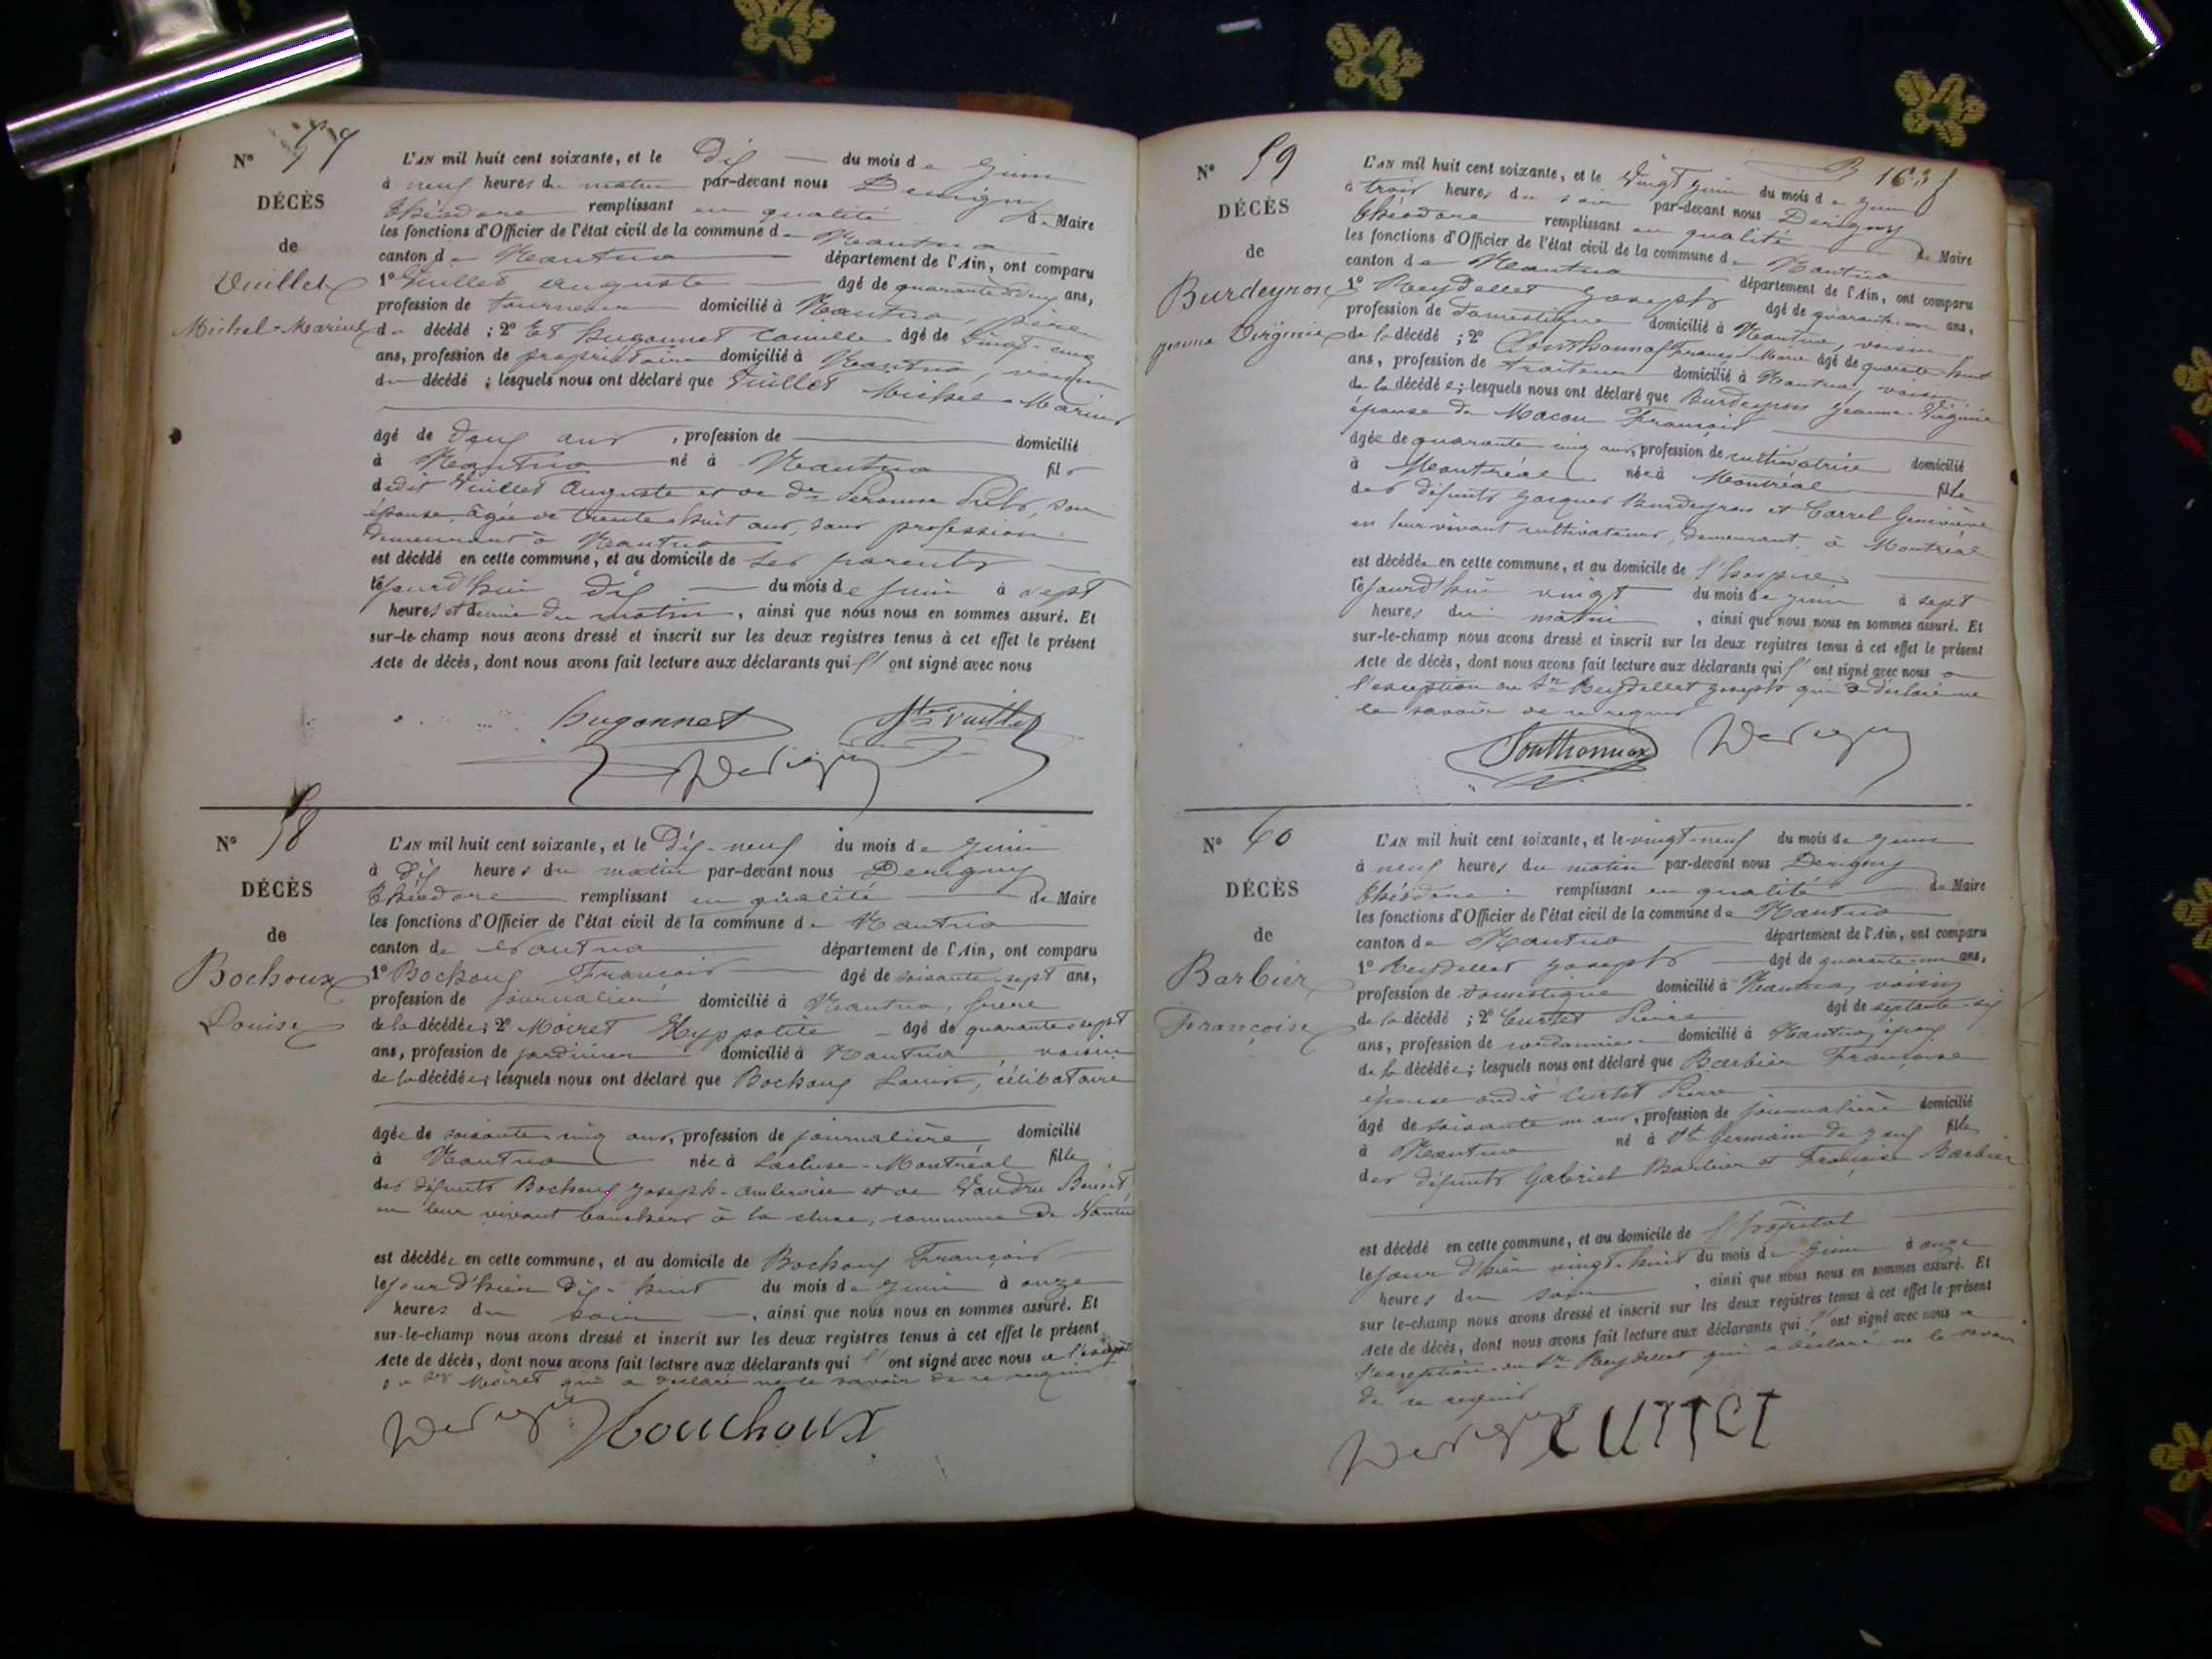 N° 57
DÉCÈS
de
Vuillet
Michel-Marius
L'AN mil huit cent soixante, et le Dix du mois de Juin
à neuf heures du matin par-devant nous Derigny
Théodore remplissant en qualité de Maire
les fonctions d'Officier de l'état civil de la commune de Nantua
canton de Nantua département de l'Ain, ont comparu
1° Vuillet Auguste âgé de quarante deux ans,
profession de tourneur domicilié à Nantua, père
du décédé ; 2° Et hugonnet Camille âgé de vingt-cinq
ans, profession de propriétaire domicilié à Nantua, voisin
du décédé ; lesquels nous ont déclaré que Vuillet Michel-Marius
âgé de deux ans, profession de domicilié
à Nantua né à Nantua fils
dudit Vuillet Auguste et de de son
épouse, âgée de trente huit ans, sans profession
demeurant à Nantua
est décédé en cette commune, et au domicile de ses parents
lejourd'hui dix du mois de Juin à sept
heures et demie du matin, ainsi que nous nous en sommes assuré. Et
sur-le-champ nous avons dressé et inscrit sur les deux registres tenus à cet effet le présent
Acte de décès, dont nous avons fait lecture aux déclarants qui l' ont signé avec nous
hugonnet Vuillet
Derigny
N° 58
DÉCÈS
de
Bochoux
Louise
L'AN mil huit cent soixante, et le Dix-neuf du mois de Juin
à dix heures du matin par-devant nous Derigny
Théodore remplissant en qualité de Maire
les fonctions d'Officier de l'état civil de la commune de Nantua
canton de Nantua département de l'Ain, ont comparu
1° Bochoux François âgé de soixante-sept ans,
profession de journalier domicilié à Nantua, frère
de la décédée ; 2° Moiret Hyppolite âgé de quarante sept
ans, profession de jardinier domicilié à Nantua, voisin
de la décédée ; lesquels nous ont déclaré que Bochoux Louise, célibataire
âgée de soixante cinq ans, profession de journalière domicilié
à Nantua née à Lacluse-Montréal fille
des défunts Bochoux Joseph-Ambroise et de Benoit
en leur vivant bouchers à la cluse, commune de
est décédée en cette commune, et au domicile de Bochoux François
le jour d'hier dix-huit du mois de Juin à onze
heures du soir, ainsi que nous nous en sommes assuré. Et
sur-le-champ nous avons dressé et inscrit sur les deux registres tenus à cet effet le présent
Acte de décès, dont nous avons fait lecture aux déclarants qui l' ont signé avec nous a l'except
du Sr Moiret qui a déclaré ne le savoir de ce requis
Derigny Bouchoux
163
N° 59
DÉCÈS
de
Burdeyron
Jeanne Virginie
L'AN mil huit cent soixante, et le vingt Juin du mois de Juin
à trois heures du soir par-devant nous Derigny
Théodore remplissant en qualité de Maire
les fonctions d'Officier de l'état civil de la commune de Nantua
canton de Nantua département de l'Ain, ont comparu
1° Reydellet Joseph âgé de quarante-un ans,
profession de domestique domicilié à Nantua, voisin
de la décédé ; 2° Marie âgé de quarante-huit
ans, profession de traiteur domicilié à Nantua, voisin
de la décédée ; lesquels nous ont déclaré que Burdeyron Jeanne-Virginie
épouse de Macon François
âgée de quarante cinq ans, profession de cultivatrice domicilié
à Montréal née à Montréal fille
des défunts Jacques Burdeyron et Carrel Geneviève
en leur vivant cultivateurs, demeurant à Montréal
est décédée en cette commune, et au domicile de l'hospice
lejourd'hui vingt du mois de Juin à sept
heures du matin, ainsi que nous nous en sommes assuré. Et
sur-le-champ nous avons dressé et inscrit sur les deux registres tenus à cet effet le présent
Acte de décès, dont nous avons fait lecture aux déclarants qui l' ont signé avec nous a
l'exception du Sr Reydellet Joseph qui a déclaré ne
le savoir de ce requis
Derigny
N° 60
DÉCÈS
de
Barbier
Françoise
L'AN mil huit cent soixante, et le vingt-neuf du mois de Juin
à neuf heures du matin par-devant nous Derigny
Théodore remplissant en qualité de Maire
les fonctions d'Officier de l'état civil de la commune de Nantua
canton de Nantua département de l'Ain, ont comparu
1° Reydellet Joseph âgé de quarante-un ans,
profession de domestique domicilié à Nantua, voisin
de la décédé ; 2° Curtet Pierre âgé de septante-six
ans, profession de cordonnier domicilié à Nantua, époux
de la décédée ; lesquels nous ont déclaré que Barbier Françoise
épouse dudit Curtet Pierre
âgé de soixante un ans, profession de journalière domicilié
à Nantua né à St Germain de Joux fille
des défunts Gabriel Barbier et Françoise Barbier
est décédé en cette commune, et au domicile de l'hôpital
le jour d'hier vingt-huit du mois de Juin à onze
heures du soir, ainsi que nous nous en sommes assuré. Et
sur le-champ nous avons dressé et inscrit sur les deux registres tenus à cet effet le présent
Acte de décès, dont nous avons fait lecture aux déclarants qui l' ont signé avec nous a
l'exception du Sr Reydellet qui a déclaré ne le savoir
de ce requis
Derigny CURTET